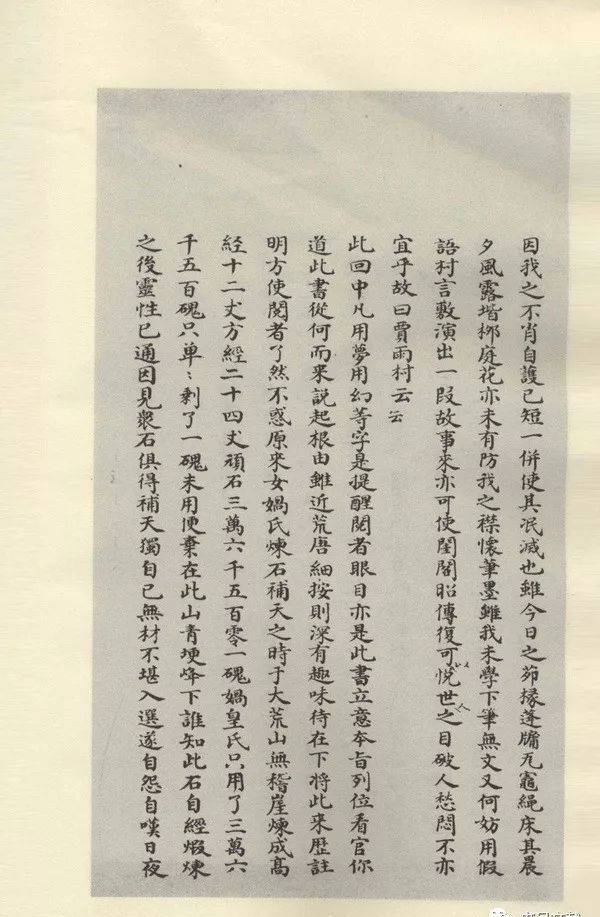 因我之不肖自護已短一併使其泯滅也雖今日之茆椽蓬牖瓦竈繩床其晨
夕風露堦栁庭花亦未有防我之襟懷筆墨雖我未學下筆無文又何妨用假
語村言敷演出一段故事來亦可使閨閣昭傳復可悦世之目破人愁悶不亦
宜乎故曰賈雨村云云
此回中凡用夢用幻等字是提醒閱者眼目亦是此書立意夲旨列位看官你
道此書從何而来説起根由雖近荒唐細按則深有趣味待在下將此来歴註
明方使閱者了然不惑原来女媧氏煉石補天之時于大荒山無稽崖煉成髙
経十二丈方經二十四丈頑石三萬六千五百零一磈媧皇氏只用了三萬六
千五百磈只单〻剩了一磈未用便棄在此山青埂峰下誰知此石自經煅煉
之後靈性已通因見衆石俱得補天獨自己無材不堪入選遂自怨自嘆日夜